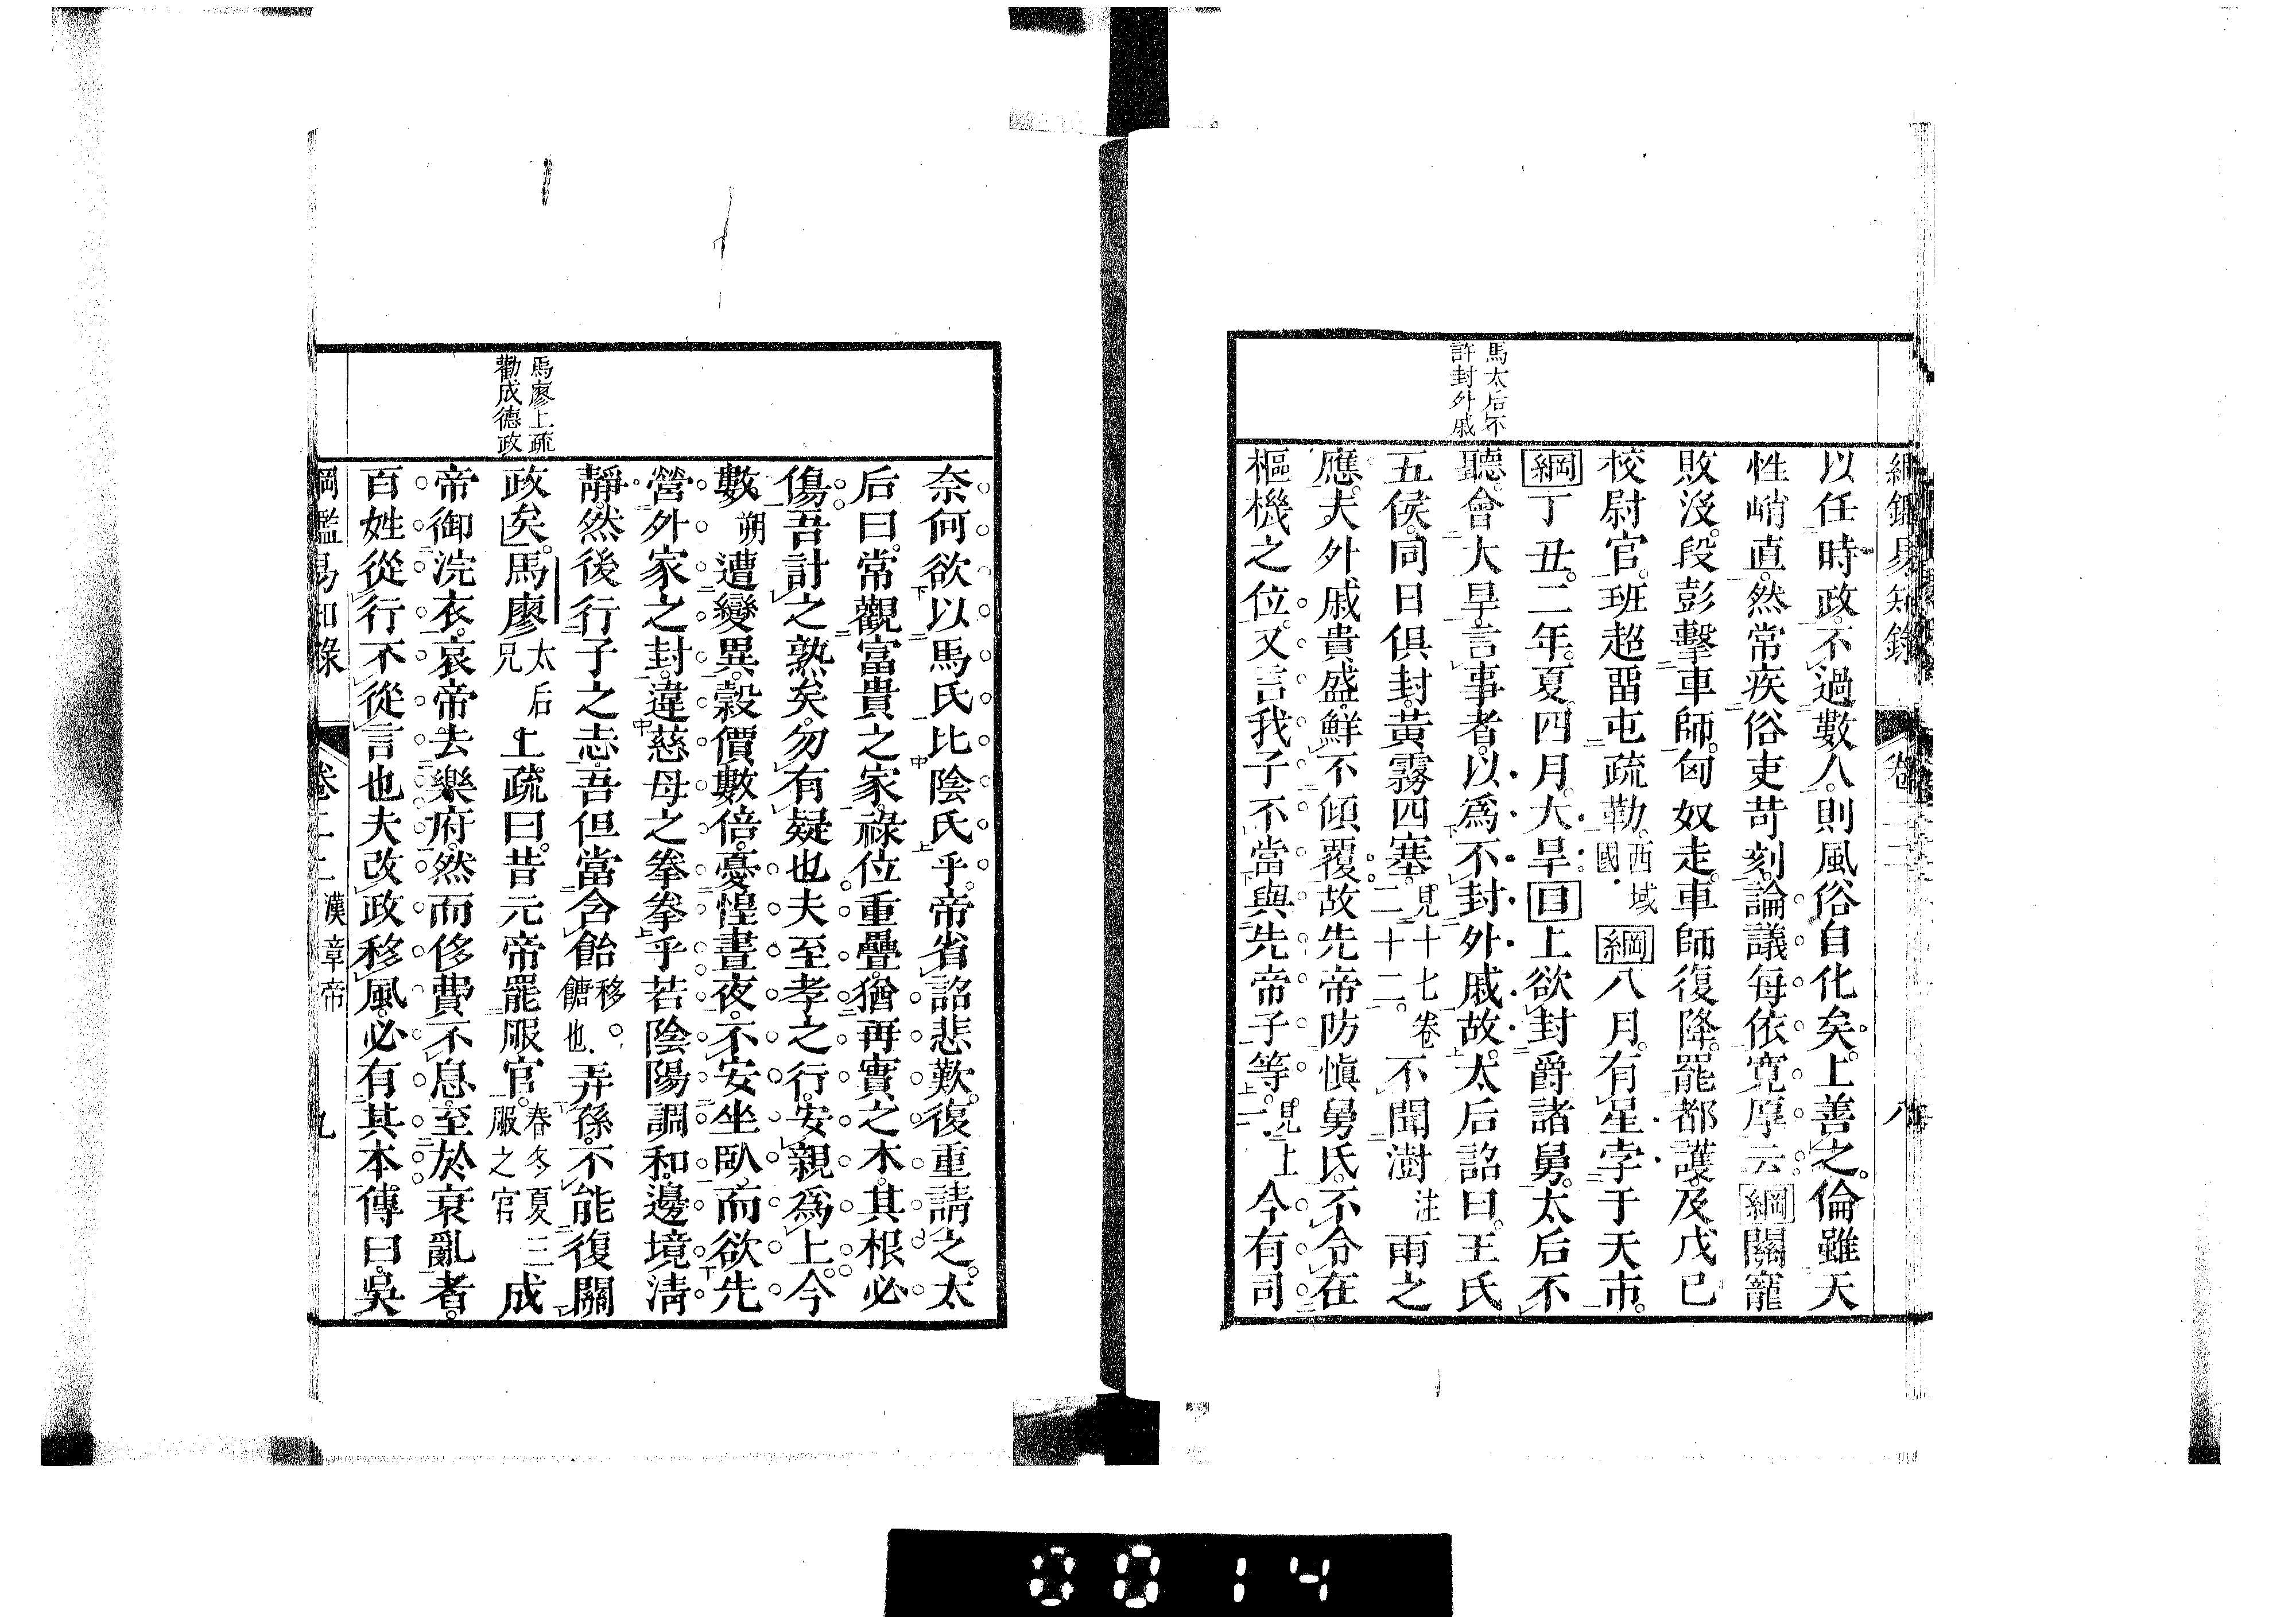 綱鑑易知錄 卷二十二 八
馬太后不
許封外戚
以任時政不過數人則風俗自化矣上善之倫雖天
性峭直然常疾俗吏苛刻論議每依寬厚云綱關寵
敗沒段彭擊車師匈奴走車師復降罷都護及戊己
校尉官班超留屯疏勒西域國綱八月有星孛于天市
綱丁丑二年夏四月大旱目上欲封爵諸舅太后不
聽會大旱言事者以爲不封外戚故太后詔曰王氏
五侯同日俱封黃霧四塞見十七卷二十二不聞澍注雨之
應夫外戚貴盛鮮不傾覆故先帝防愼舅氏不令在
樞機之位又言我子不當與先帝子等見上一今有司
馬廖上疏
勸成德政
奈何欲以馬氏比陰氏乎帝省詔悲歎復重請之太
后曰常觀富貴之家祿位重疊猶再實之木其根必
傷吾計之熟矣勿有疑也夫至孝之行安親爲上今
數朔遭變異穀價數倍憂惶晝夜不安坐臥而欲先
營外家之封違慈母之拳拳乎若陰陽調和邊境淸
靜然後行子之志吾但當含飴移餹也弄孫不能復關
政矣馬廖太后兄上疏曰昔元帝罷服官春冬夏三服之官成
帝御浣衣哀帝去樂府然而侈費不息至於衰亂者
百姓從行不從言也夫改政移風必有其本傳曰吳
綱鑑易知錄 卷二十二 漢章帝 九
0014